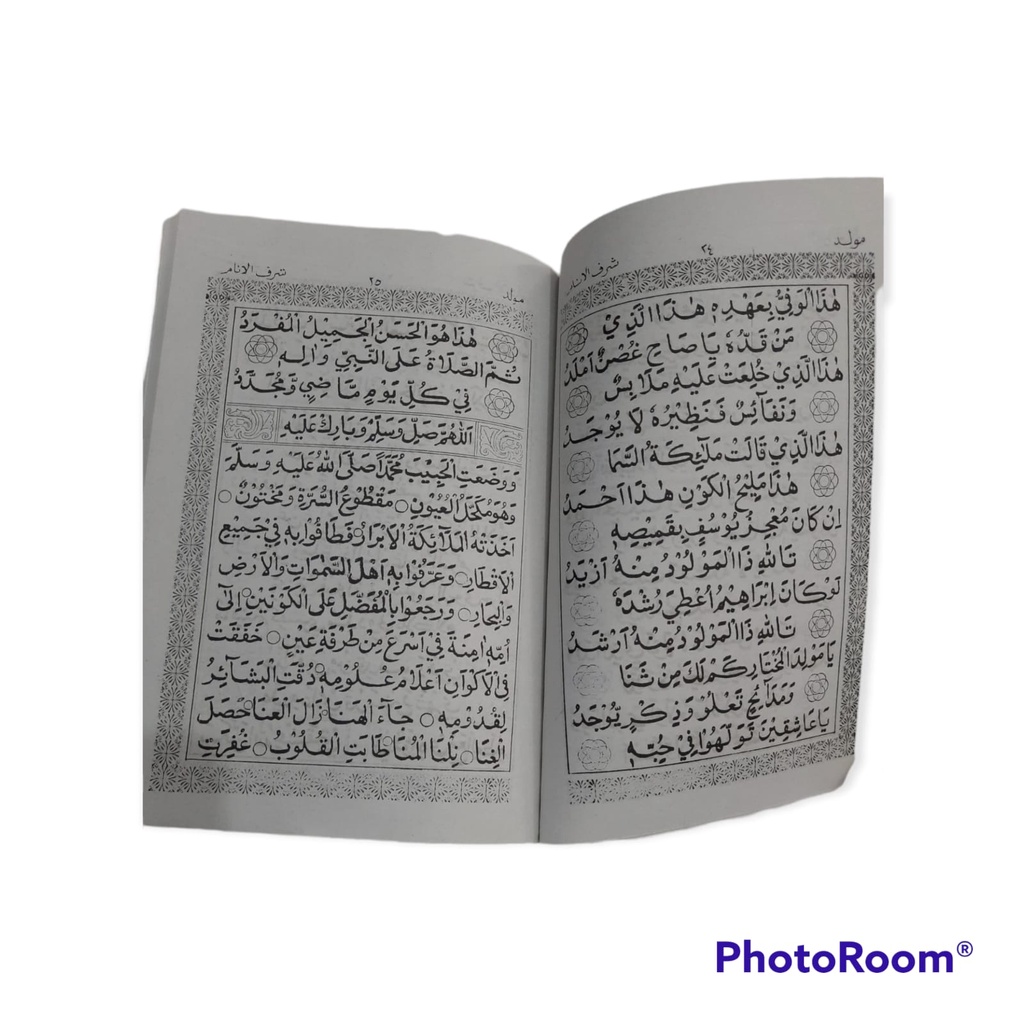 مولد
٢٤
شرف الانام
هٰذَا الْوَفِيُّ بِعَهْدِهٖ هٰذَا الَّذِيْ
مَنْ قَدُّهٗ يَا صَاحِ غُصْنٌ اَمْلَدُ
هٰذَا الَّذِيْ خُلِعَتْ عَلَيْهِ مَلَابِسٌ
وَنَفَآئِسٌ فَنَظِيْرُهٗ لَا يُوْجَدُ
هٰذَا الَّذِيْ قَالَتْ مَلٰٓئِكَةُ السَّمَا
هٰذَا مَلِيْحُ الْكَوْنِ هٰذَا اَحْمَدُ
اِنْ كَانَ مُعْجِزُ يُوْسُفٍ بِقَمِيْصِهٖ
تَاللّٰهِ ذَا الْمَوْلُوْدُ مِنْهُ اَزْيَدُ
لَوْ كَانَ اِبْرَاهِيْمُ اُعْطِيَ رُشْدَهٗ
تَاللّٰهِ ذَا الْمَوْلُوْدُ مِنْهُ اَرْشَدُ
يَا مَوْلِدَ الْمُخْتَارِ كَمْ لَكَ مِنْ ثَنَا
وَمَدَآئِحٍ تَعْلُوْ وَذِكْرٍ يُّوْجَدُ
يَا عَاشِقِيْنَ تَوَلَّهُوْا فِيْ حُبِّهٖ
مولد
٢٥
شرف الانام
هٰذَا هُوَ الْحَسَنُ الْجَمِيْلُ الْمُفْرَدُ
ثُمَّ الصَّلَاةُ عَلَى النَّبِيِّ وَاٰلِهٖ
فِيْ كُلِّ يَوْمٍ مَّاضِيٍ وَّمُجَدَّدُ
اَللّٰهُمَّ صَلِّ وَسَلِّمْ وَبَارِكْ عَلَيْهِ
وَوَضَعَتِ الْحَبِيْبَ مُحَمَّدًا صَلَّى اللّٰهُ عَلَيْهِ وَسَلَّمَ
وَهُوَ مُكَحَّلُ الْعُيُوْنِ ○ مَقْطُوْعُ السُّرَّةِ وَمَخْتُوْنٌ ○
اَخَذَتْهُ الْمَلَآئِكَةُ الْاَبْرَارُ ○ فَطَافُوْا بِهٖ فِيْ جَمِيْعِ
الْاَقْطَارِ ○ وَعَرَّفُوْا بِهٖ اَهْلَ السَّمٰوَاتِ وَالْاَرْضِ
وَالْبِحَارِ ○ وَرَجَعُوْا بِالْمُفَضَّلِ عَلَى الْكَوْنَيْنِ ○ اِلٰى
اُمِّهٖ اٰمِنَةَ فِيْ اَسْرَعَ مِنْ طَرْفَةِ عَيْنٍ ○ خَفَقَتْ
فِي الْاَكْوَانِ اَعْلَامُ عُلُوْمِهٖ ○ دُقَّتِ الْبَشَآئِرُ
لِقُدُوْمِهٖ ○ جَآءَ الْهَنَا ○ زَالَ الْعَنَا ○ حَصَلَ
الْغِنَا ○ نِلْنَا الْمُنَا ○ طَابَتِ الْقُلُوْبُ ○ غُفِرَتِ
PhotoRoom®